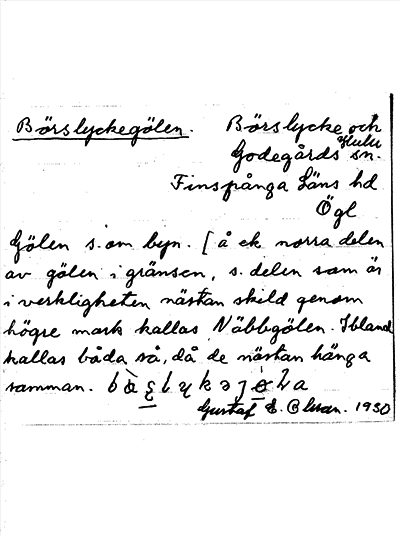 Börslyckegölen. Börslycke och
Godegårds sn.
Finspånga Läns hd
Ögl
Gölen s. om byn. [å ek norra delen
av gölen i gränsen, s. delen som är
i verkligheten nästan skild genom
högre mark kallas Näbbgölen. Ibland
kallas båda så, då de nästan hänga
samman.
Gustaf E. 1930